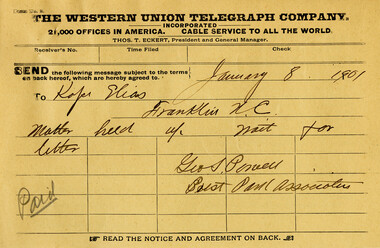 THE WESTERN UNION TELEGRAPH COMPANY.
INCORPORATED
21,000 OFFICES IN AMERICA. CABLE SERVICE TO ALL THE WORLD.
THOS. T. ECKERT, President and General Manager.
Receiver's No. Time Filed Check
SEND the following message subject to the terms
on back hereof, which are hereby agreed to.
January 8 1901
To Kope Elias
Franklin N.C.
Matter held up wait for
letter
Geo S. Powell
Paid
READ THE NOTICE AND AGREEMENT ON BACK.